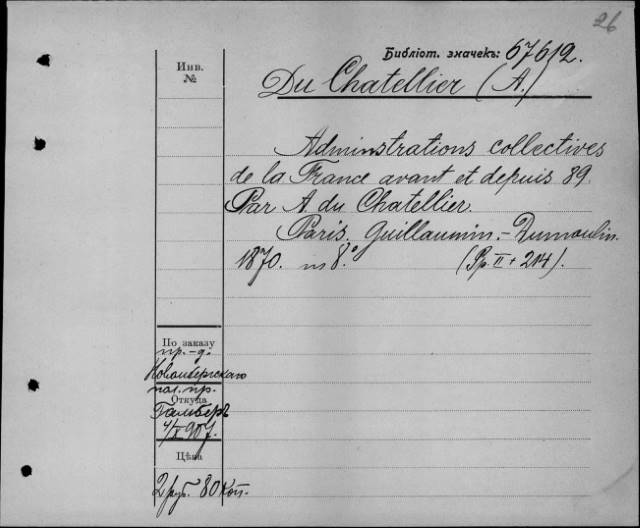 26
Библіот. значекъ: 67612.
Инв.
№
Du Chatellier (A.)
Adminstrations collectives
de la France avant et depuis 89.
Par A. du Chatellier.
Paris. Guillaumin.-Dumoulin.
1870. in 8.° (Pp II + 214).
По заказу
пр.-д.
Новомбергскаго
пол. пр.
Откуда
Гамберъ
4/X 907.
Цѣна
2 руб. 80 коп.